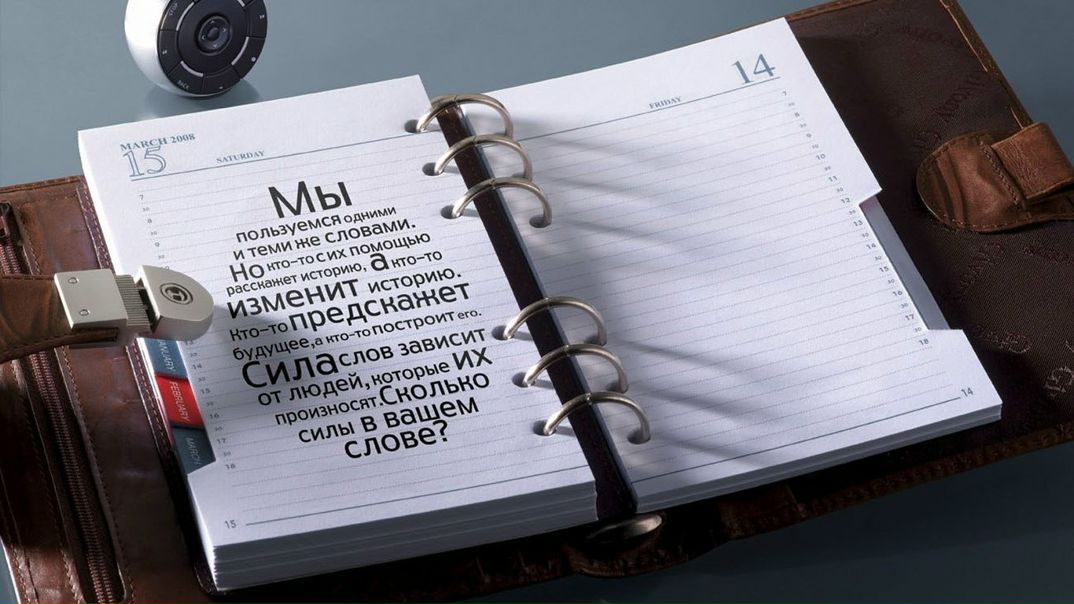 STOP
BACK
MARCH 2008
15
SATURDAY
Мы
пользуемся одними
и теми же словами.
Но кто-то с их помощью
расскажет историю, а кто-то
изменит историю.
Кто-то предскажет
будущее, а кто-то построит его.
Сила слов зависит
от людей, которые их
произносят. Сколько
силы в вашем
слове?
7
8
JANUARY
FEBRUARY
MARCH
16
17
18
15
14
FRIDAY
7
8
9
10
11
12
13
14
15
16
17
18
14